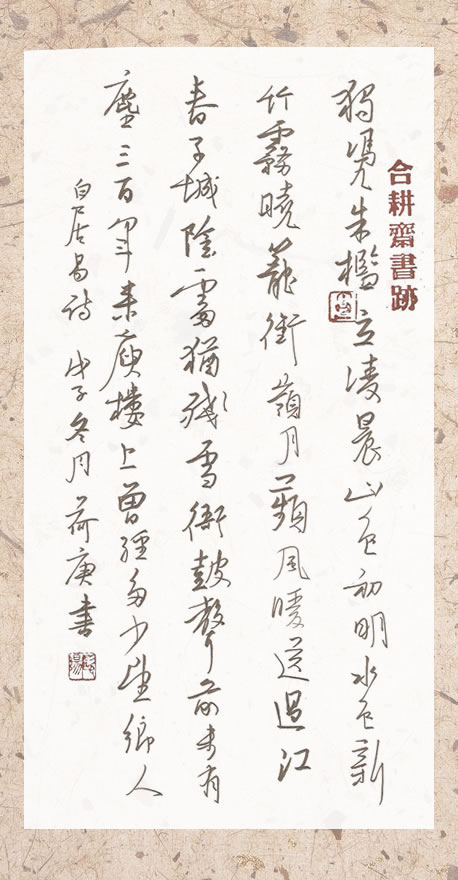 合耕齋書跡
獨憑朱檻立凌晨山色初明水色新
竹霧曉籠銜嶺月蘋風暖送過江
春子城陰處猶殘雪衙鼓聲前未有
塵三百年来庾樓上曾經多少望鄉人
白居易詩 戊子冬月荷庚書